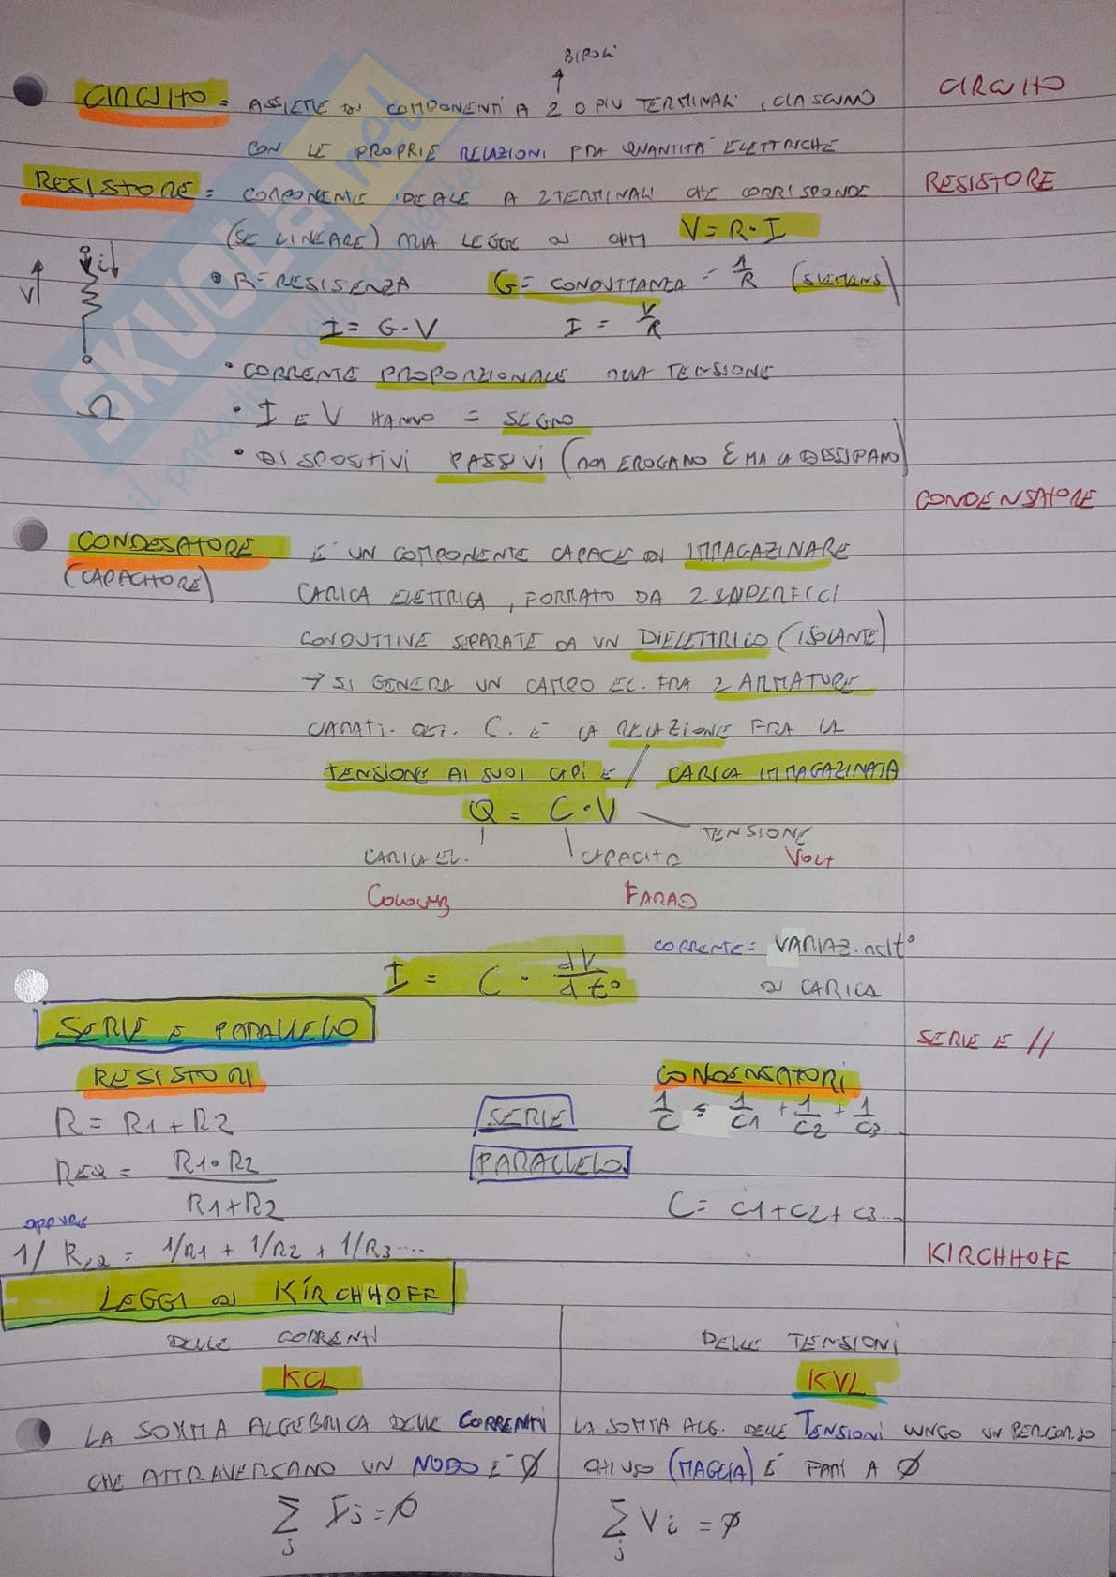 BIPOLI
CIRCUITO = ASSIEME DI COMPONENTI A 2 O PIU TERMINALI, CIASCUNO
CIRCUITO
CON LE PROPRIE RELAZIONI FRA QUANTITÀ ELETTRICHE
RESISTORE = COMPONENTE IDEALE A 2 TERMINALI CHE CORRISPONDE
RESISTORE
(SE LINEARE) ALLA LEGGE DI OHM V = R · I
V i
• R = RESISENZA G = CONDUTTANZA = 1/R (SIEMENS)
I = G · V I = V/R
• CORRENTE PROPORZIONALE ALLA TENSIONE
Ω
• I E V HANNO = SEGNO
• DISPOSITIVI PASSIVI (NON EROGANO E MA LA DISSIPANO)
CONDENSATORE
CONDESATORE È UN COMPONENTE CAPACE DI IMMAGAZINARE
(CAPACITORE) CARICA ELETTRICA, FORMATO DA 2 SUPERFICI
CONDUTTIVE SEPARATE DA UN DIELETTRICO (ISOLANTE)
→ SI GENERA UN CAMPO EL. FRA 2 ARMATURE
CARATT. DEL C. È LA RELAZIONE FRA LA
TENSIONE AI SUOI CAPI E / CARICA IMMAGAZINATA
Q = C · V
TENSIONE
CARICA EL. CAPACITÀ Volt
Coloumb FARAD
CORRENTE = VARIAZ. nel t°
I = C · dV/dt°
DI CARICA
SERIE E PARALLELO
SERIE E //
RESISTORI CONDENSATORI
R = R1 + R2 SERIE 1/C = 1/C1 + 1/C2 + 1/C3
REQ = R1 · R2 / R1 + R2 PARALLELO
C = C1 + C2 + C3...
oppure
1/REQ = 1/R1 + 1/R2 + 1/R3....
KIRCHHOFF
LEGGI DI KIRCHHOFF
DELLE CORRENTI DELLE TENSIONI
KCL KVL
LA SOMMA ALGEBRICA DELLE CORRENTI
CHE ATTRAVERSANO UN NODO È Ø
∑j Ij = Ø
LA SOMMA ALG. DELLE TENSIONI LUNGO UN PERCORSO
CHIUSO (MAGLIA) È PARI A Ø
∑j Vi = Ø
SKUOLA.net